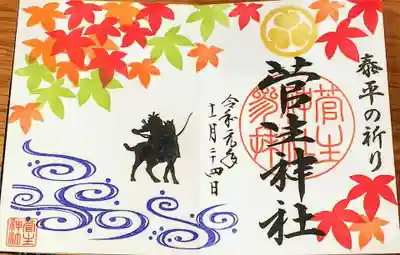 泰平の祈り
菅生神社
令和元年
十一月二十四日
菅生
神社